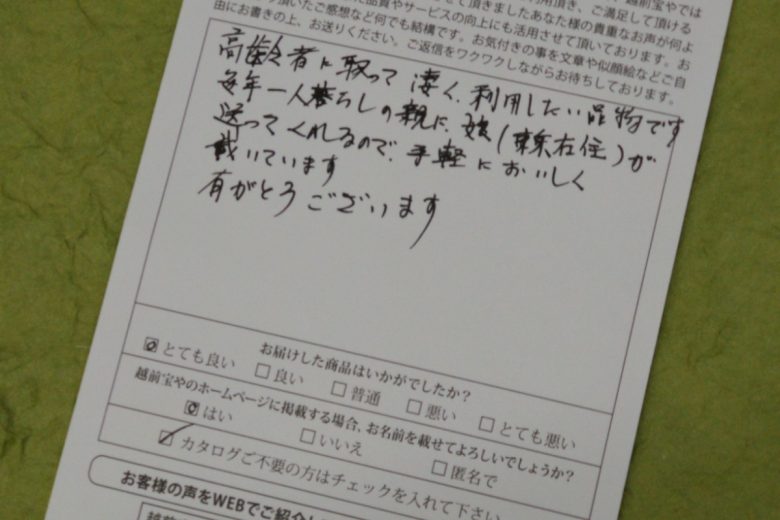 頂いたご感想など何でも結構です。お気付きの事を文章や似顔絵などご自
由にお書きの上、お送りください。ご返信をワクワクしながらお待ちしております。
高齢者に取って凄く、利用したい品物です
毎年一人暮らしの親に、娘(東京在住)が
送ってくれるので、手軽においしく
戴いています
有がとうございます
お届けした商品はいかがでしたか?
とても良い 良い 普通 悪い とても悪い
越前宝やのホームページに掲載する場合、お名前を載せてよろしいでしょうか?
はい いいえ 匿名で
カタログご不要の方はチェックを入れて下さい
お客様の声をWEBでご紹介